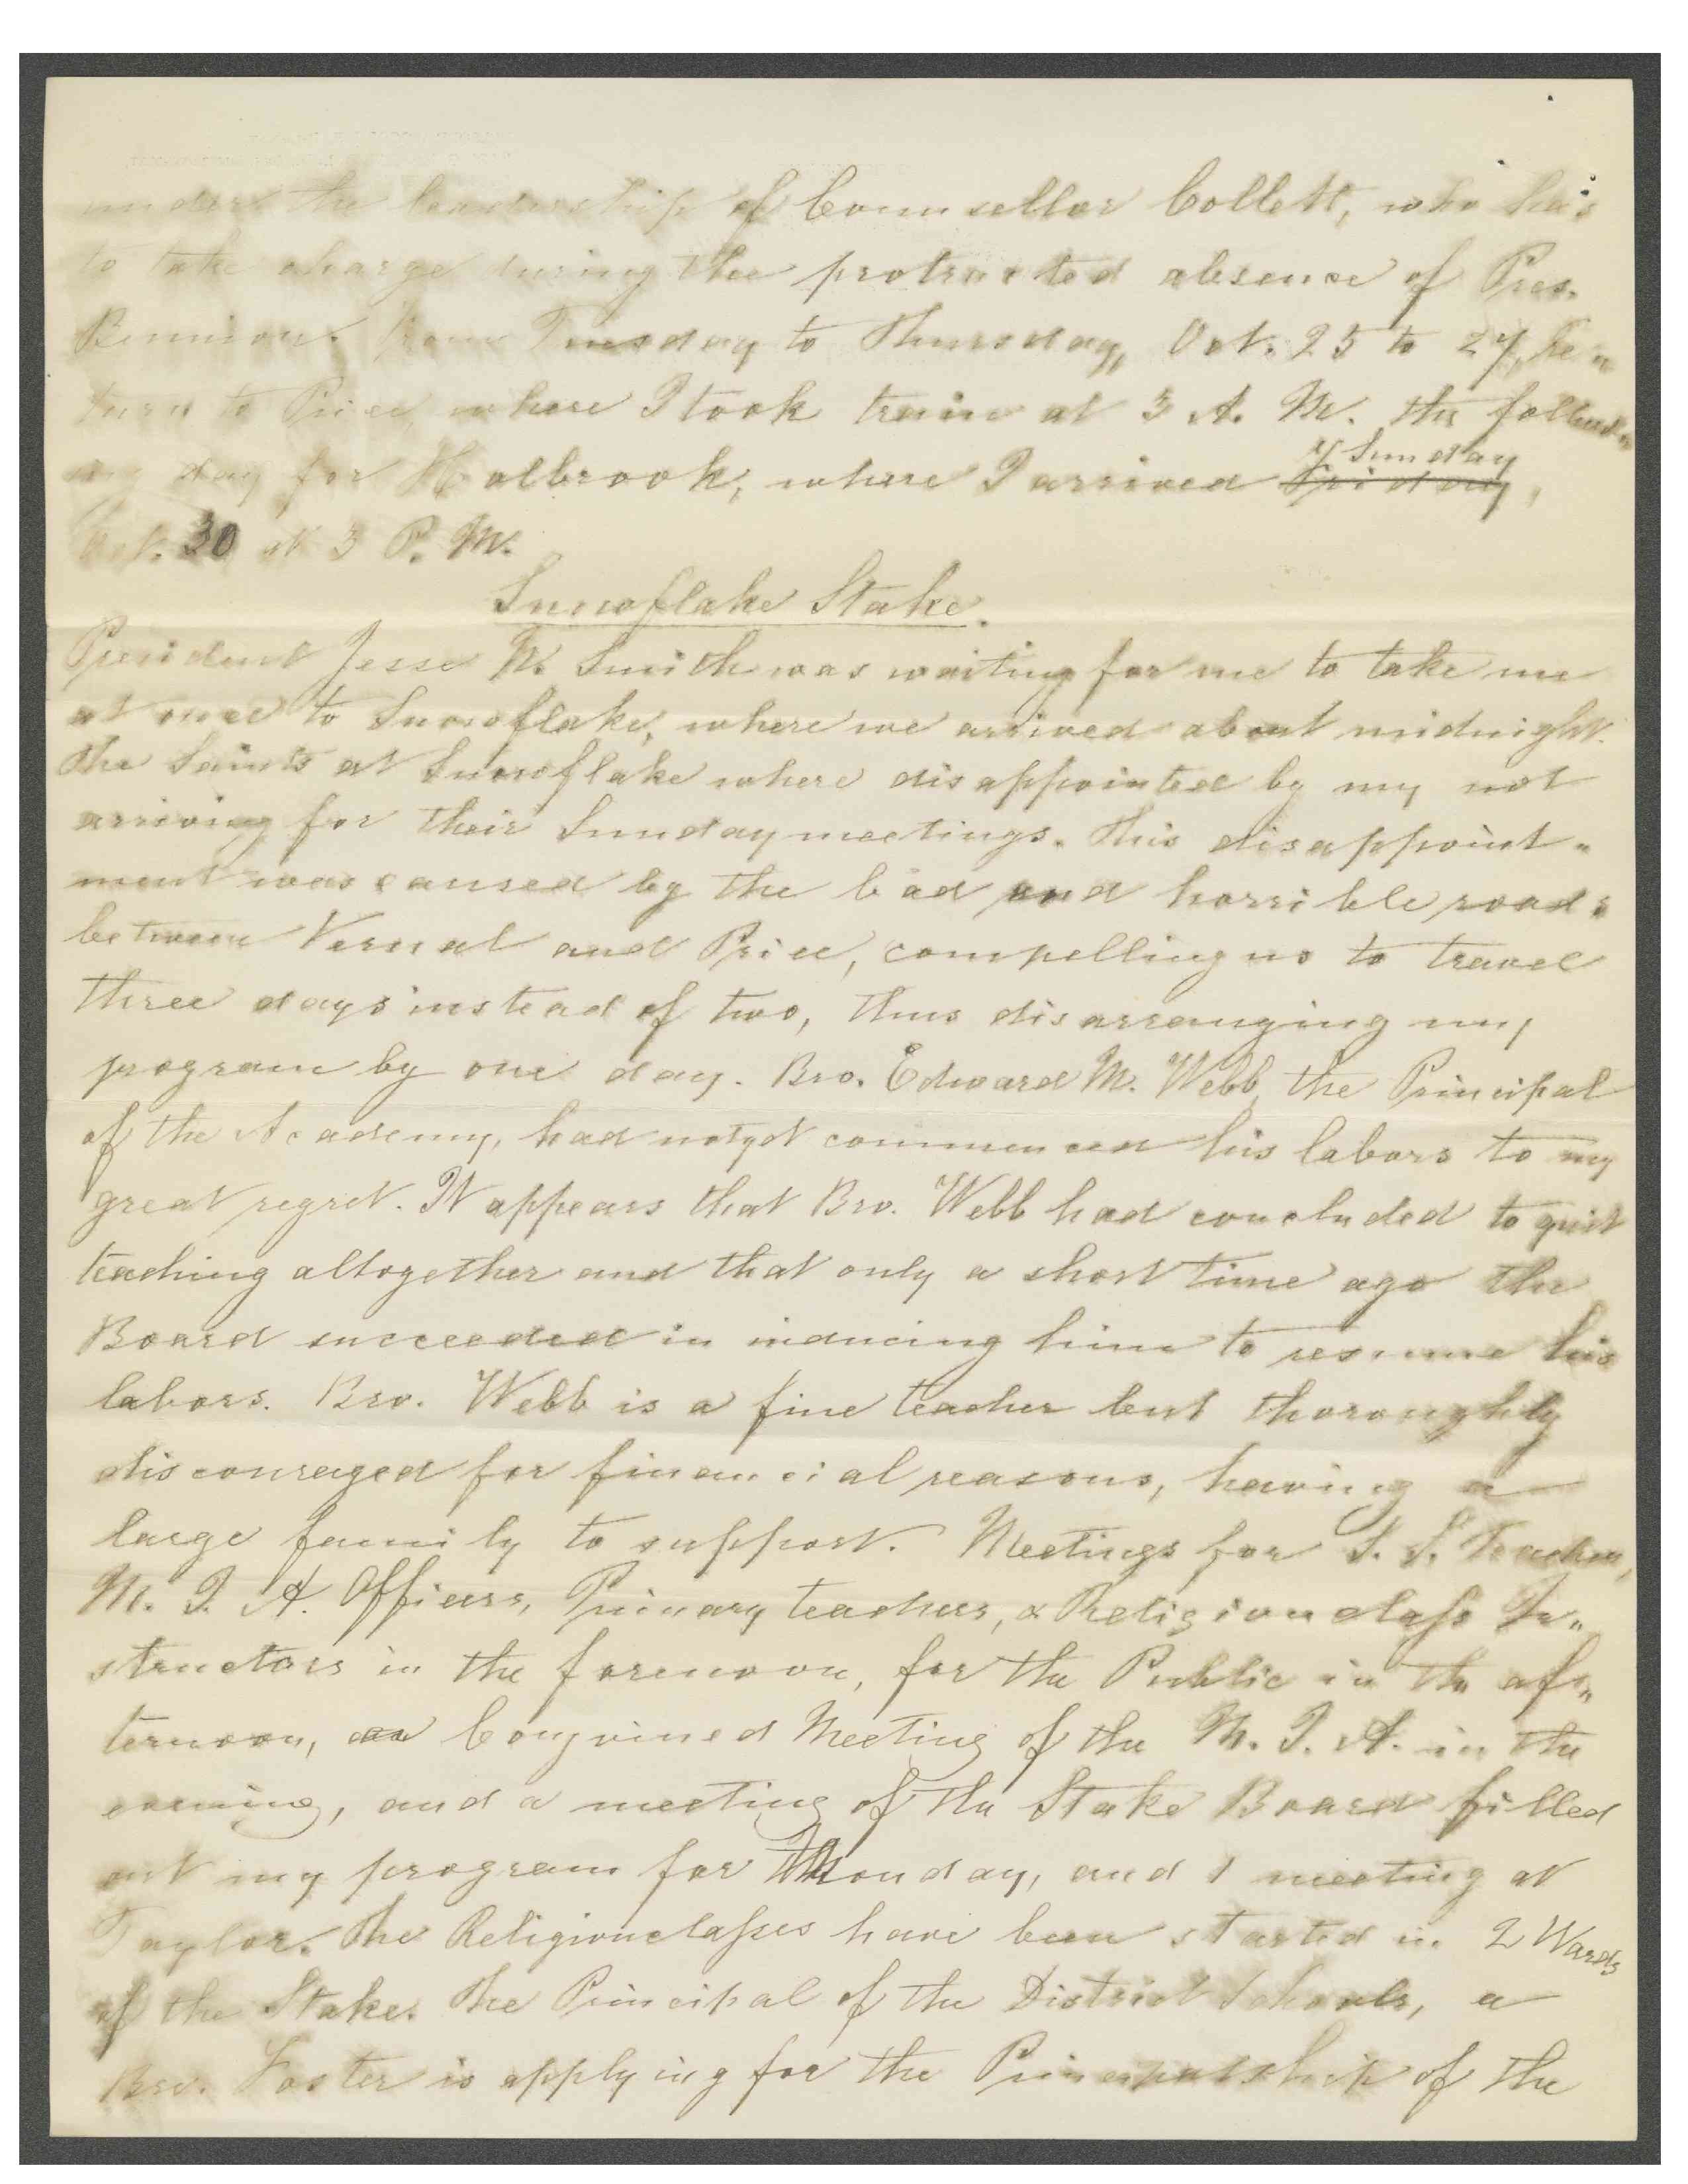 under the leadership of Counsellor Collett, who has
to take charge during the protracted absence of Pres.
Bennion. From Tuesday to Thursday, Oct. 25 to 27, re„
turn to Price, where I took train at 3 A. M. the follow„
ing day for Holbrook, where I arrived ~~Friday~~ Sunday,
Oct. 30 at 3 P. M.
Snowflake Stake.
President Jesse N. Smith was waiting for me to take me
at once to Snowflake, where we arrived about midnight.
The Saints at Snowflake where disappointed by my not
arriving for their Sunday meetings. This disappoint„
ment was caused by the bad and horrible roads
between Vernal and Price, compelling us to travel
three days instead of two, thus disarranging my
program by one day. Bro. Edward M. Webb, the Principal
of the Academy, had not yet commenced his labors to my
great regret. It appears that Bro. Webb had concluded to quit
teaching altogether and that only a short time ago the
Board succeeded in inducing him to resume his
labors. Bro. Webb is a fine teacher but thoroughly
discouraged for financial reasons, having a
large family to support. Meetings for S. S. Teachers,
M. I. A. Officers, Primary teachers, & Religionclass In„
structors in the forenoon, for the Public in the af„
ternoon, a Conjoined Meeting of the M. I. A. in the
evening, and a meeting of the Stake Board filled
out my program for Monday, and 1 meeting at
Taylor. The Religionclasses have been started in 2 Wards
of the Stake. The Principal of the District Schools, a
Bro. Foster is applying for the Principalship of the